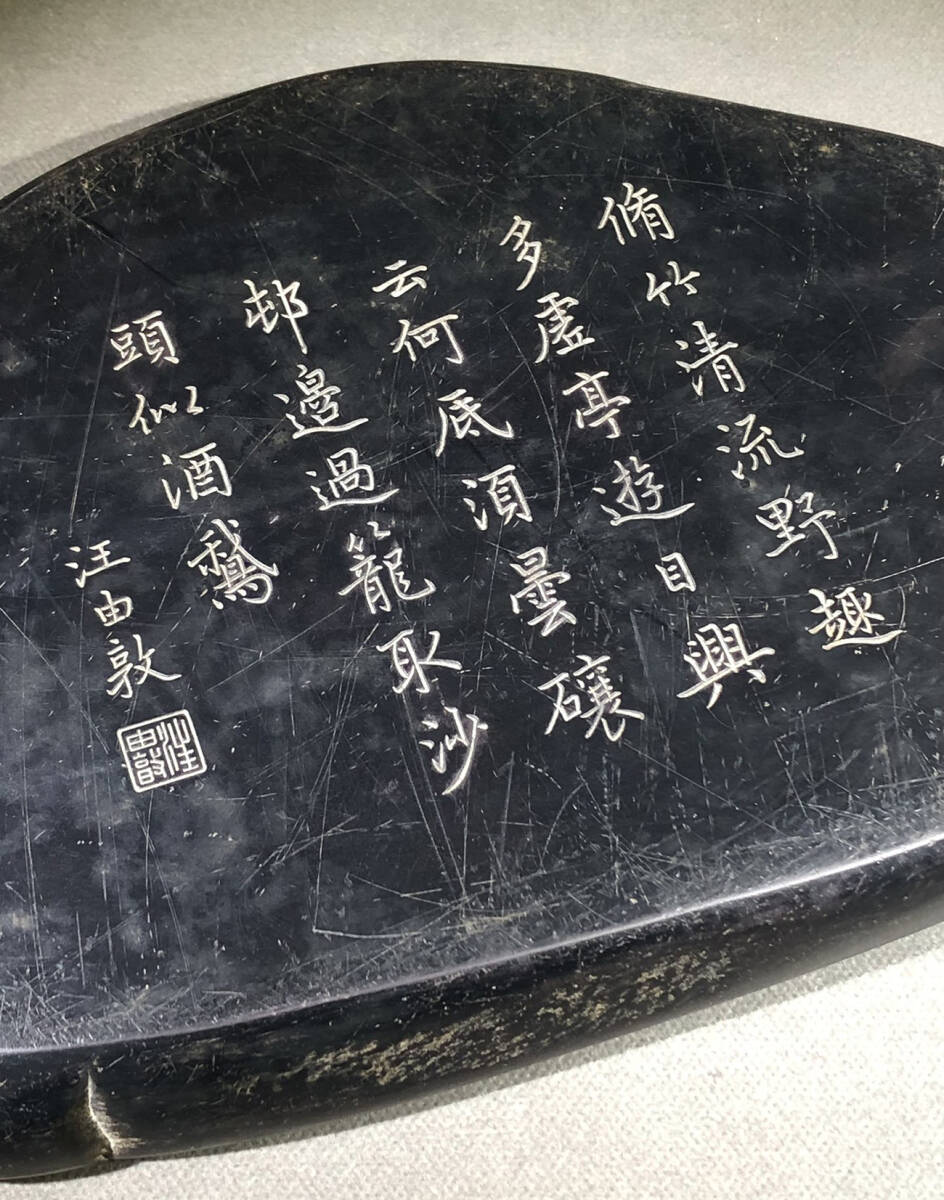 脩竹清流野趣
多虛亭遊目興
云何底須曇礲
邨邊過籠取沙
頭似酒鵞
汪由敦
汪由敦